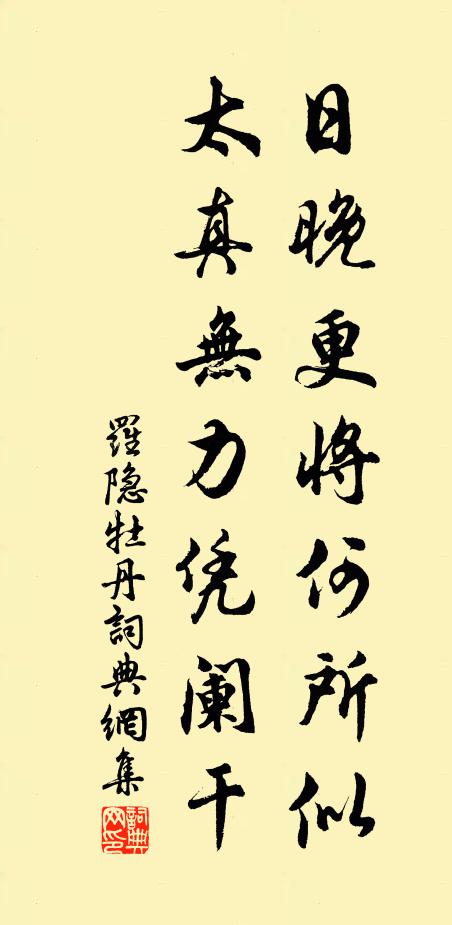 日晚更將何所似
太真無力凭阑干
羅隐牡丹詞典網集
詞典
网印